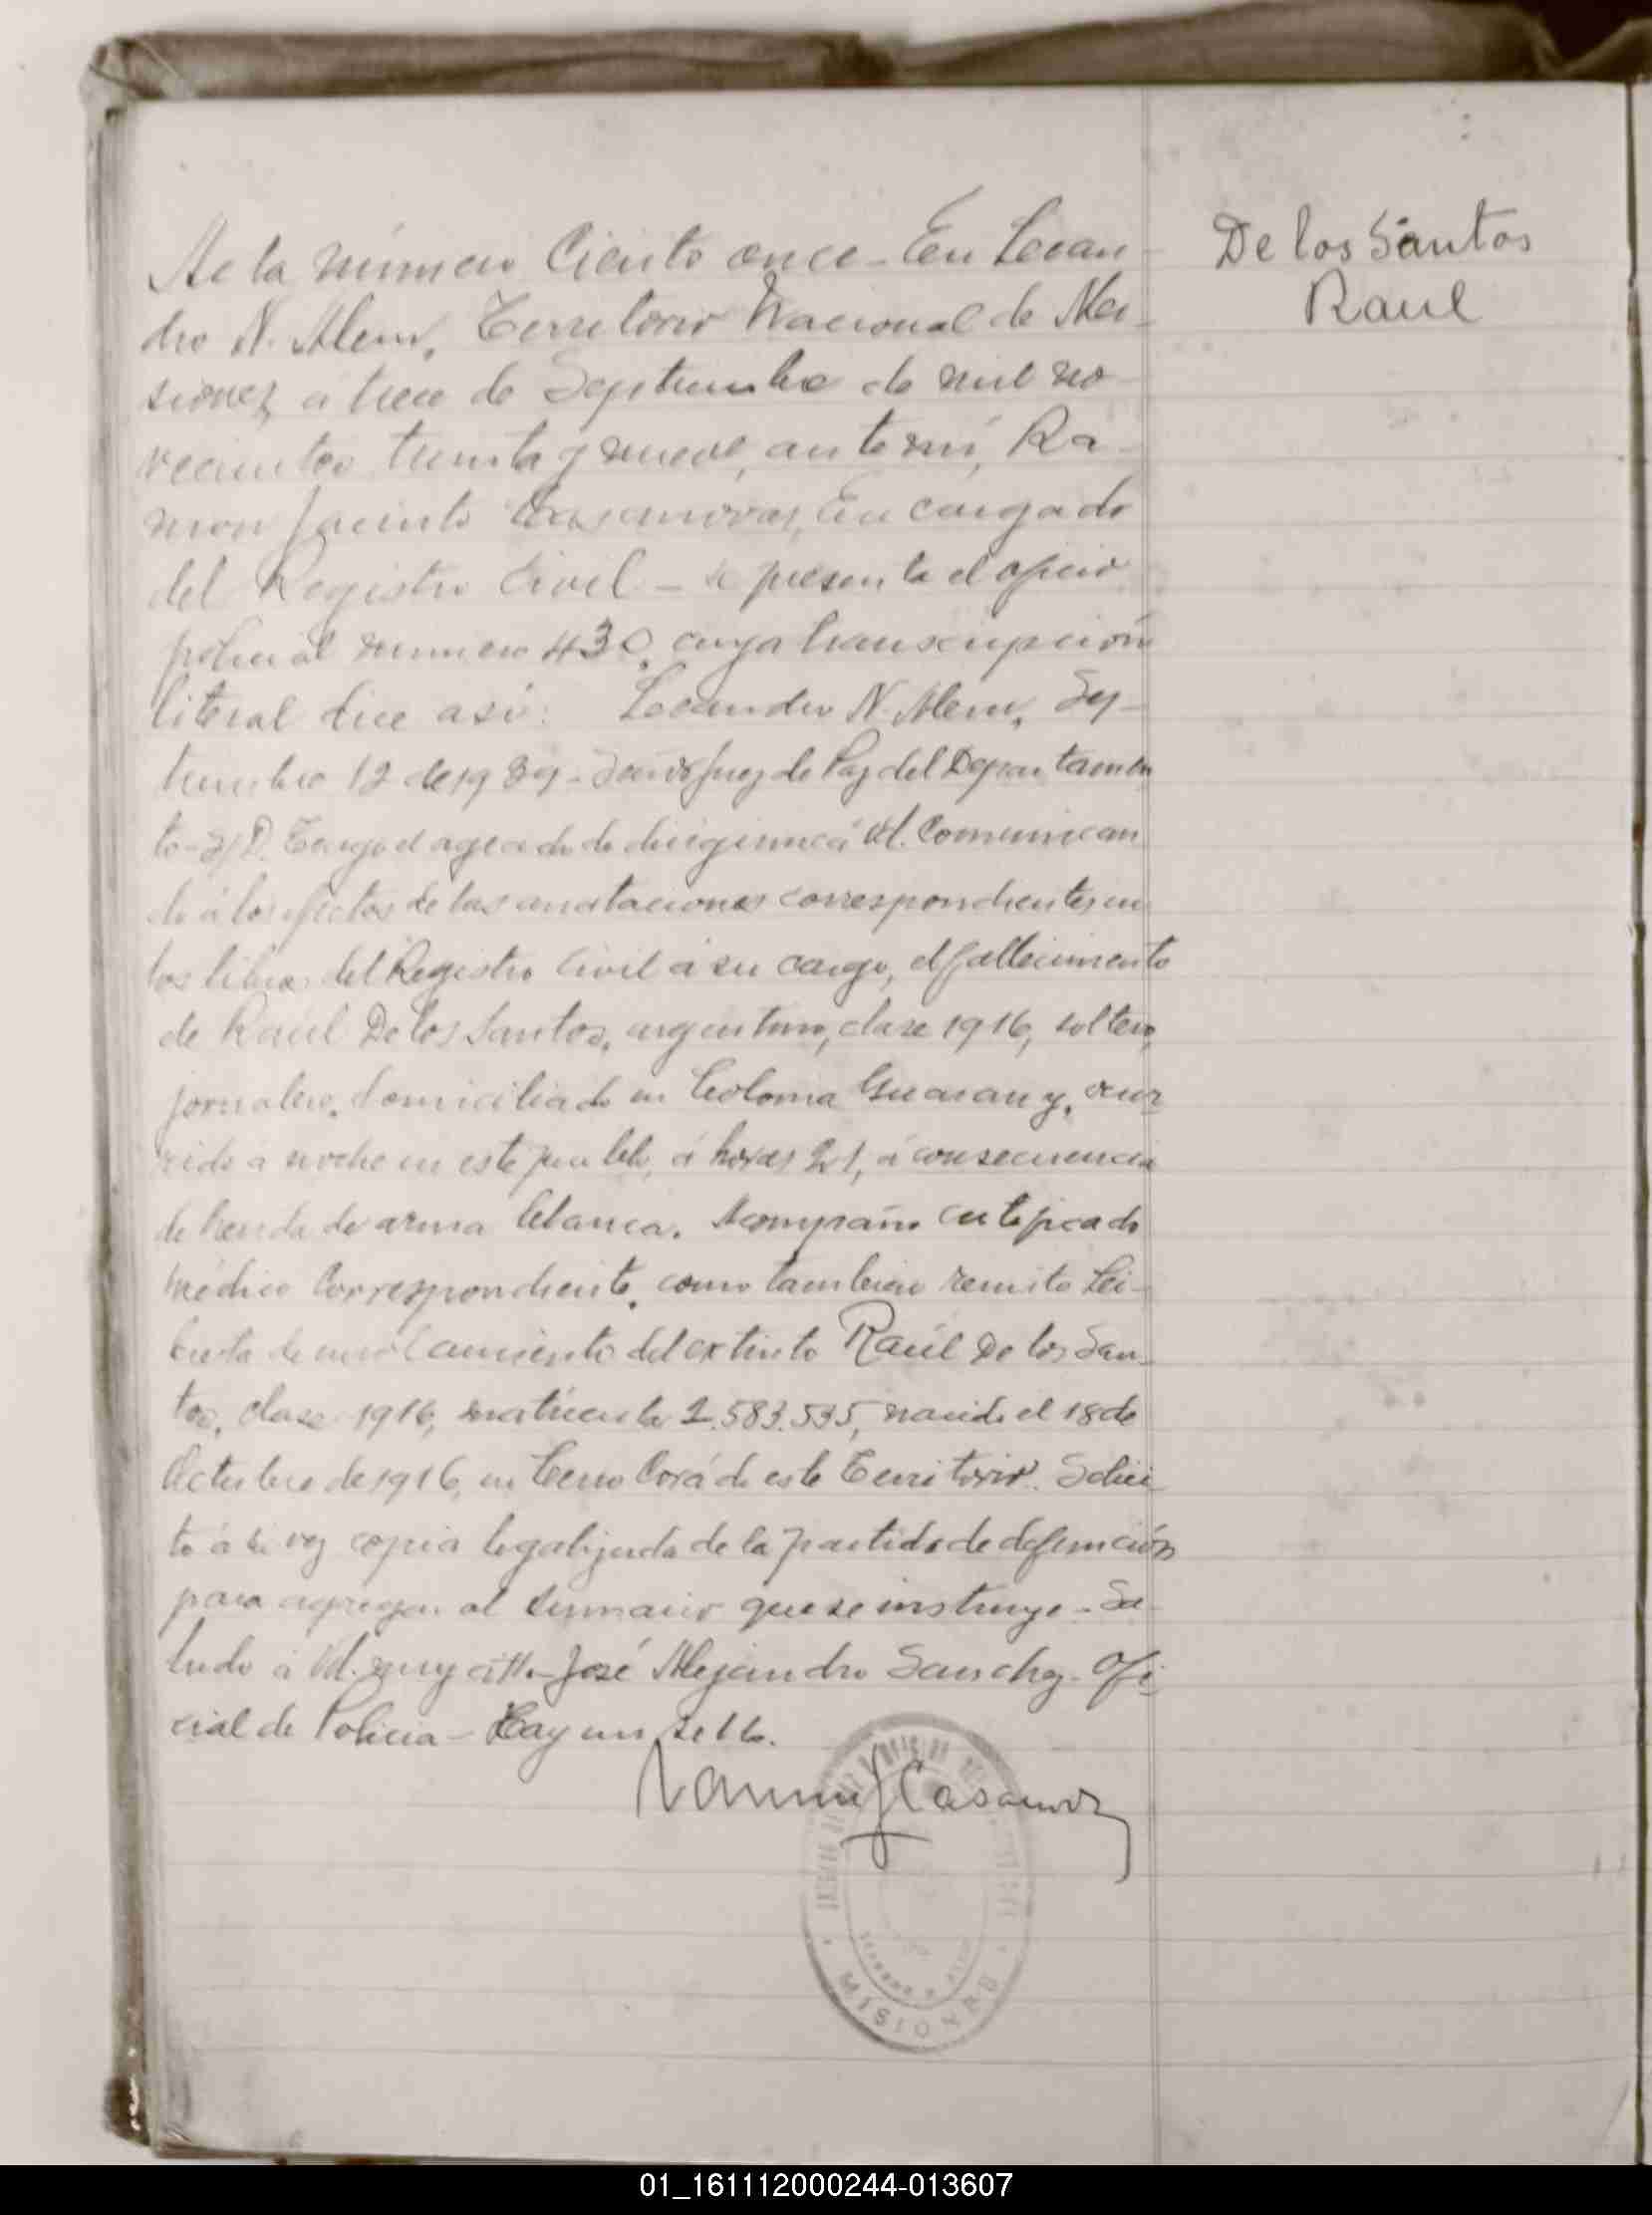 De los Santos
Raul
Acta número Ciento once - En Lean-
dro N. Alem, Territorio Nacional de Mi-
siones, a trece de Septiembre de mil no-
vecientos treinta y nueve, ante mí, Ra-
mon Jacinto Casanovas, Encargado
del Registro Civil - se presenta el oficio
policial número 430, cuya transcripción
literal dice así: Leandro N. Alem, Sep-
tiembre 12 de 1939 - Señor Juez de Paz del Departamen
to - S/D. Tengo el agrado de dirigirme á Ud. Comunican
do á los efectos de las anotaciones correspondientes en
los libros del Registro Civil á su cargo, el fallecimiento
de Raúl De los Santos, argentino, clase 1916, soltero,
jornalero, domiciliado en Colonia Guarany, ocur
rido a noche en este pueblo, á horas 21, á consecuencia
de herida de arma blanca. Acompaño certificado
médico Correspondiente, como tambien remito Li-
breta de enrolamiento del extinto Raúl De los San-
tos, clase 1916, matrícula 2.583.535, nacido el 18 de
Octubre de 1916, en Cerro Corá de este Territorio. Solici
to á su vez copia legalizada de la partida de defunción
para agregar al sumario que se instruye - Sa-
ludo á Ud. muy atte. José Alejandro Sanchez - Ofi-
cial de Policia - Hay un sello.
Ramon J Casanovas
MISIONES
01_161112000244-013607